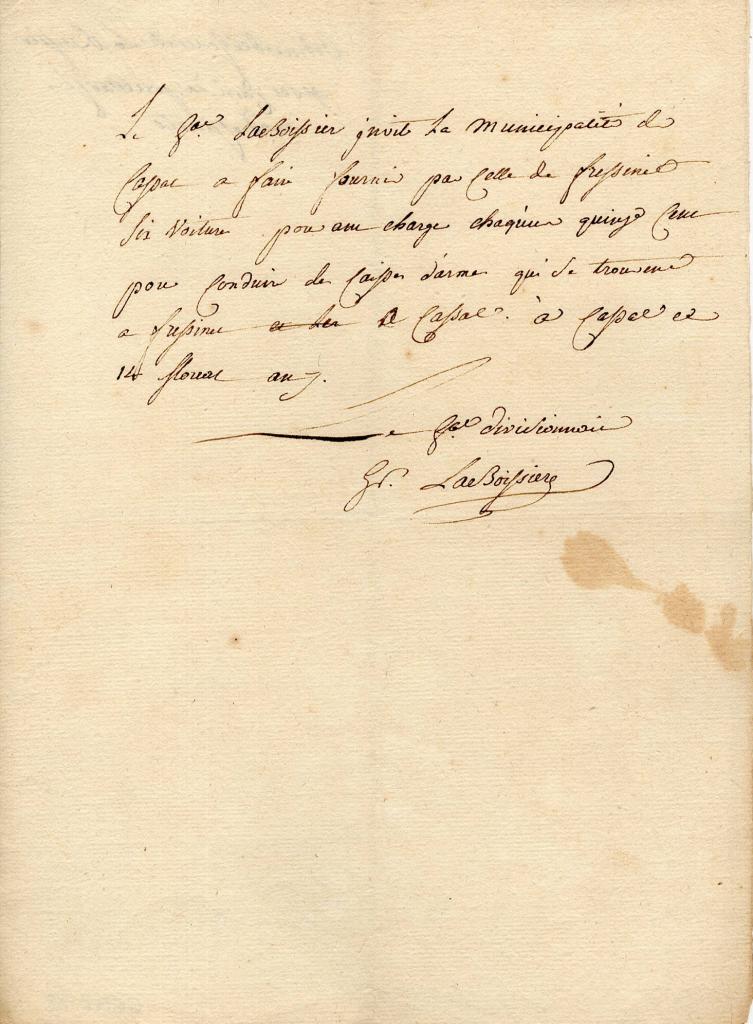 Le Gal. LaBoissier jnvite La Municipalité de
Cassal a faire fournir par Celle de fressinet
Six Voiture pouvant charge chaqune quinze Cent
pour Conduire des Caisses d'arme qui Se trouvent
a fressinet a Cassal. à Cassal le
14 floreal an 7.
Le Gal divisionnaire
Gr. LaBoissiere